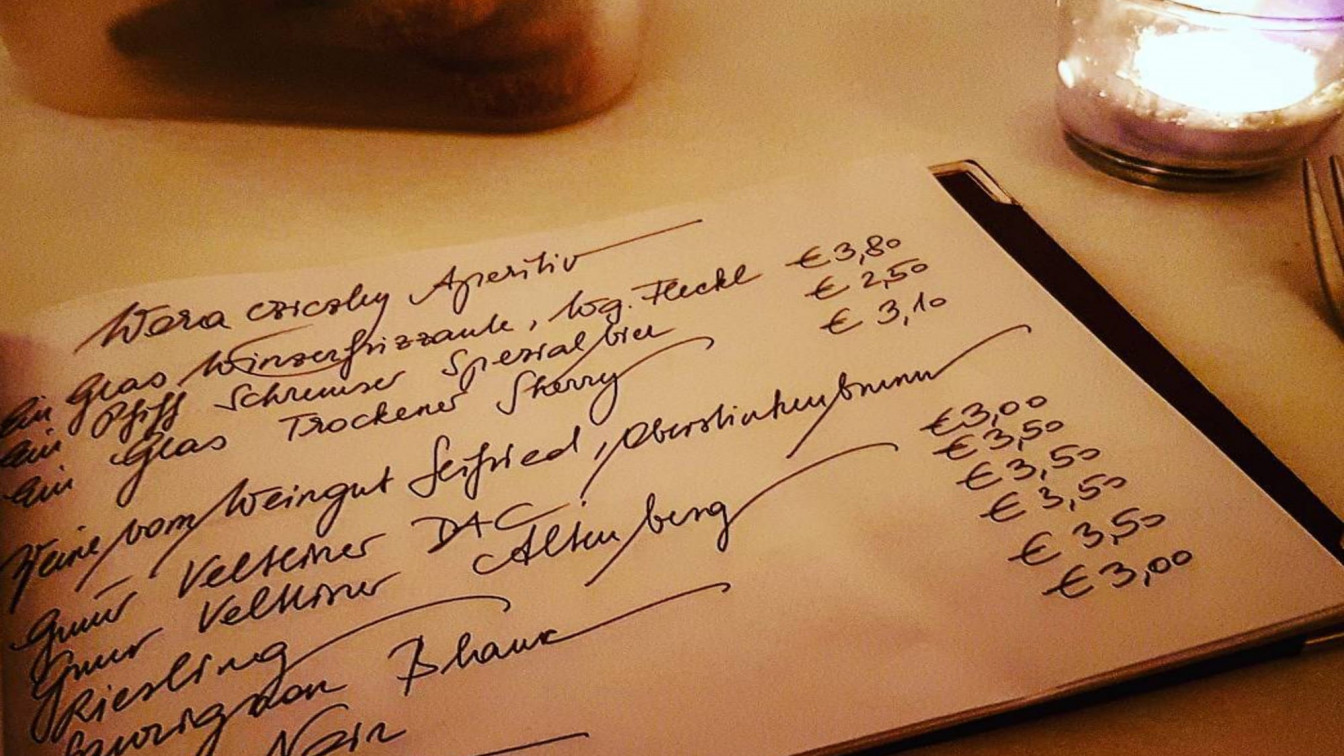 Wora cziczky Aperitiv
Ein Glas Winzerfrizzante, Wg. Fleckl € 3,80
Ein Pfiff Schremser Spezialbier € 2,50
Ein Glas Trockener Sherry € 3,10
Weine vom Weingut Seifried, Oberstinkenbrunn
Grüner Veltliner DAC € 3,00
Grüner Veltliner Altenberg € 3,50
Riesling € 3,50
Sauvignon Blanc € 3,50
Noir € 3,50
€ 3,00